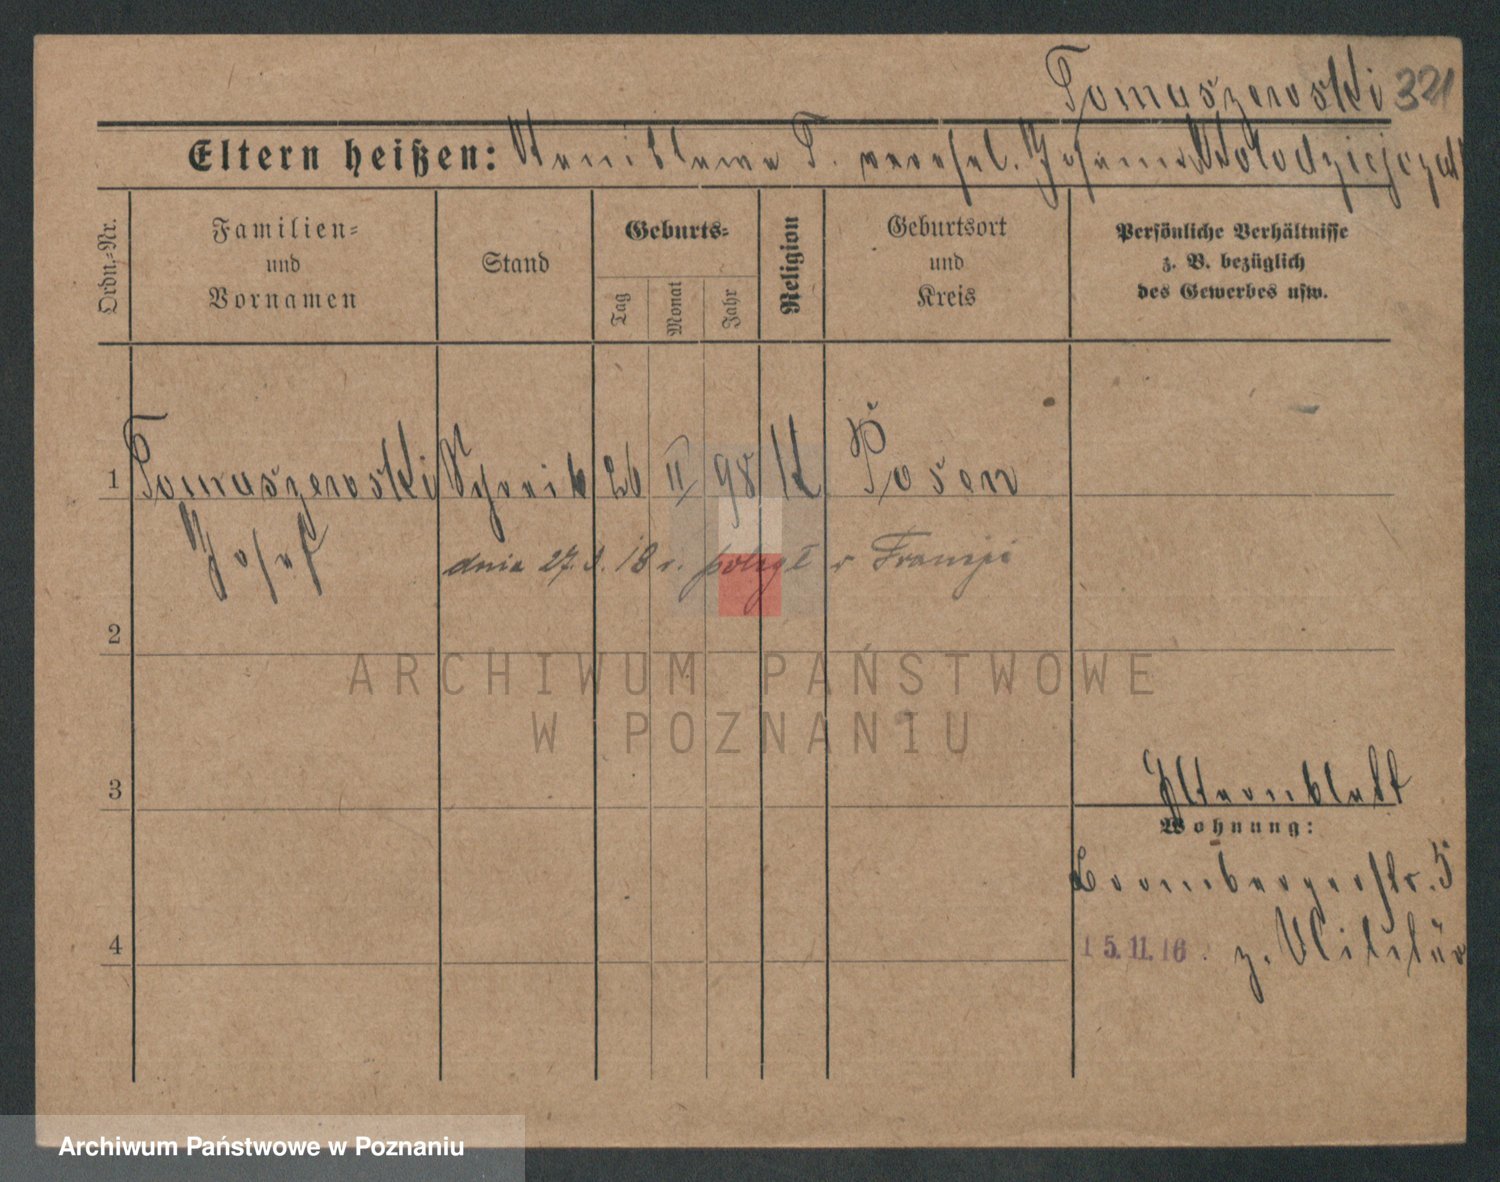 Tomaszewski 321
Eltern heißen: Stanislawa T. verehel. Wolodziejczak
Ordn.-Nr.
Familien-
und
Vornamen
Stand
Geburts-
Tag
Monat
Jahr
Religion
Geburtsort
und
Kreis
Persönliche Verhältnisse
z. B. bezüglich
des Gewerbes usw.
1 Tomaszewski 26 II 98 K Posen
Josef
dnia 27. 18 r. poległ w Francji
2
ARCHIWUM PAŃSTWOWE
W POZNANIU
3
Elternblatt
Wohnung:
Brombergerstr. 5
4
15.11.16. z. Militär
Archiwum Państwowe w Poznaniu